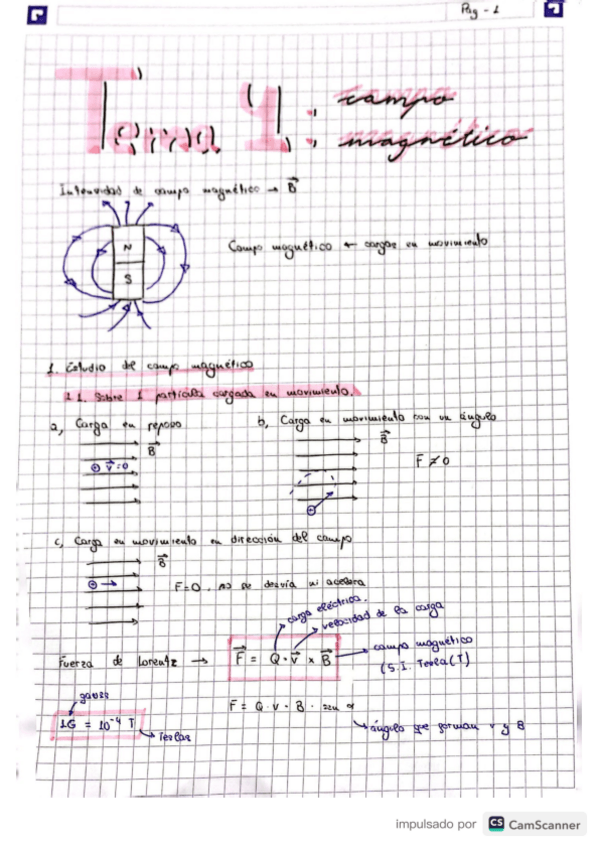 Pag - 1
Tema 1: campo
magnético
Intensidad de campo magnético → B⃗
N
S
Campo magnético ← cargas en movimiento
1. Estudio del campo magnético
1.1. Sobre 1 partícula cargada en movimiento.
a, Carga en reposo
b, Carga en movimiento con un ángulo
B⃗
B⃗
⊕ v⃗=0
F ≠ 0
c, Carga en movimiento en dirección del campo
B⃗
F=0, no se desvía ni acelera
carga eléctrica.
velocidad de la carga
Fuerza de Lorentz → F⃗ = Q · v⃗ x B⃗
campo magnético
(S.I. Tesla (T)
gauss
1G = 10⁻⁴ T
Teslas
F = Q · v · B · sen α
ángulo que forman v y B
impulsado por CS CamScanner